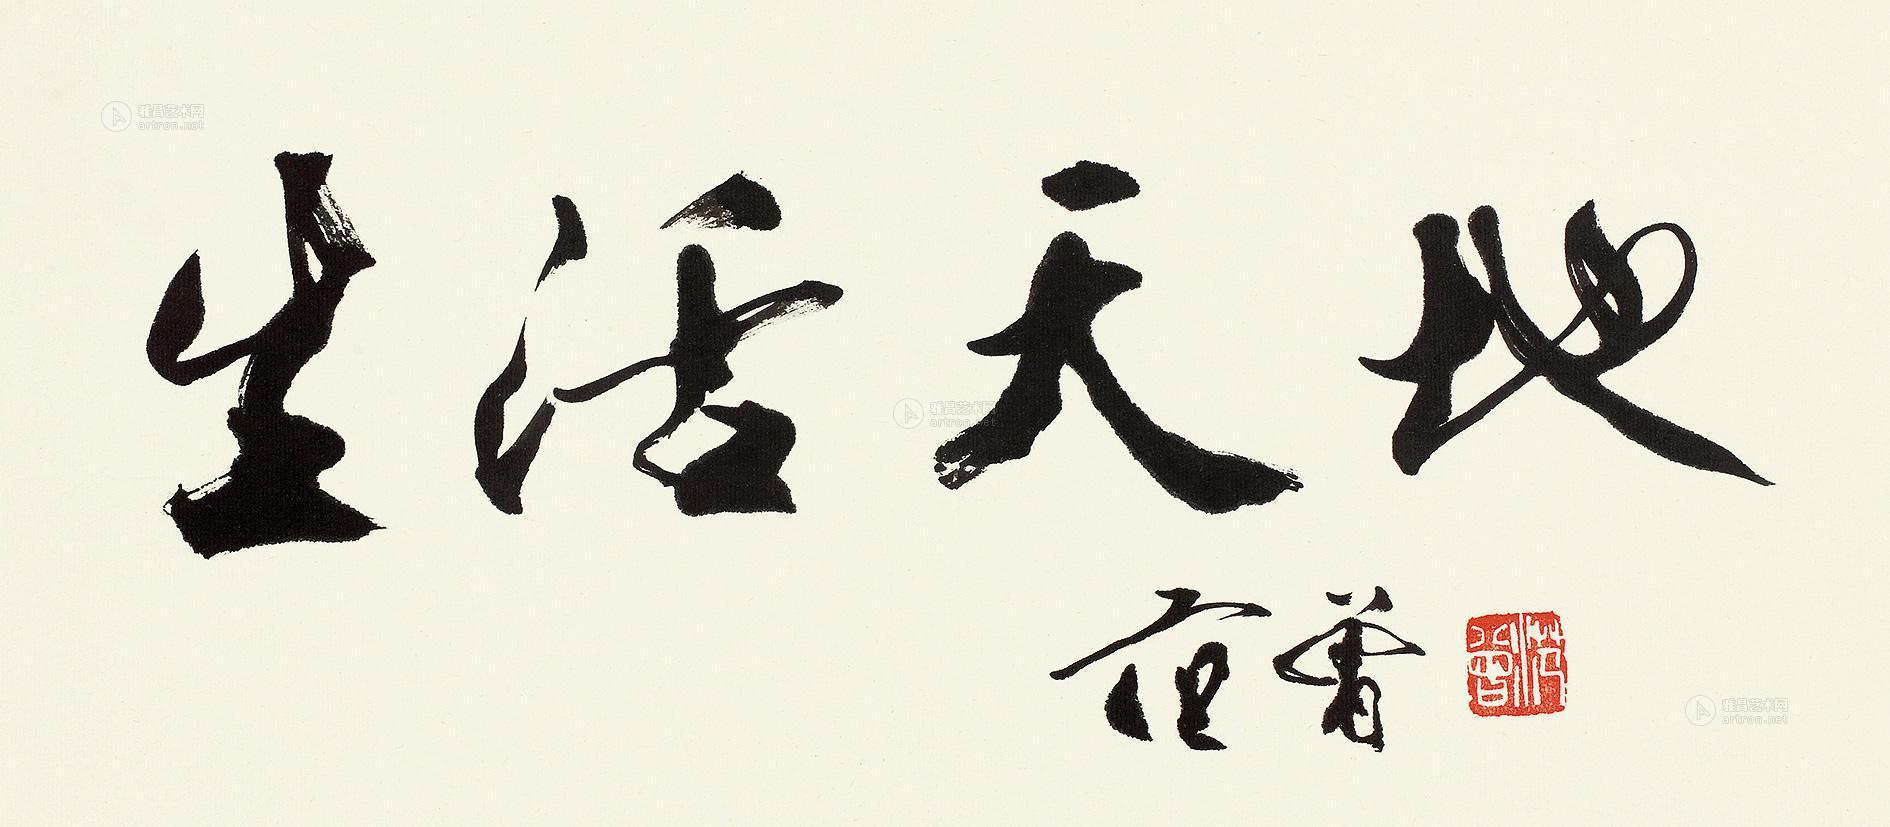 雅昌艺术网
artron.net
生活天地
雅昌艺术网
artron.net
范曾
范曾
雅昌艺术网
artron.net